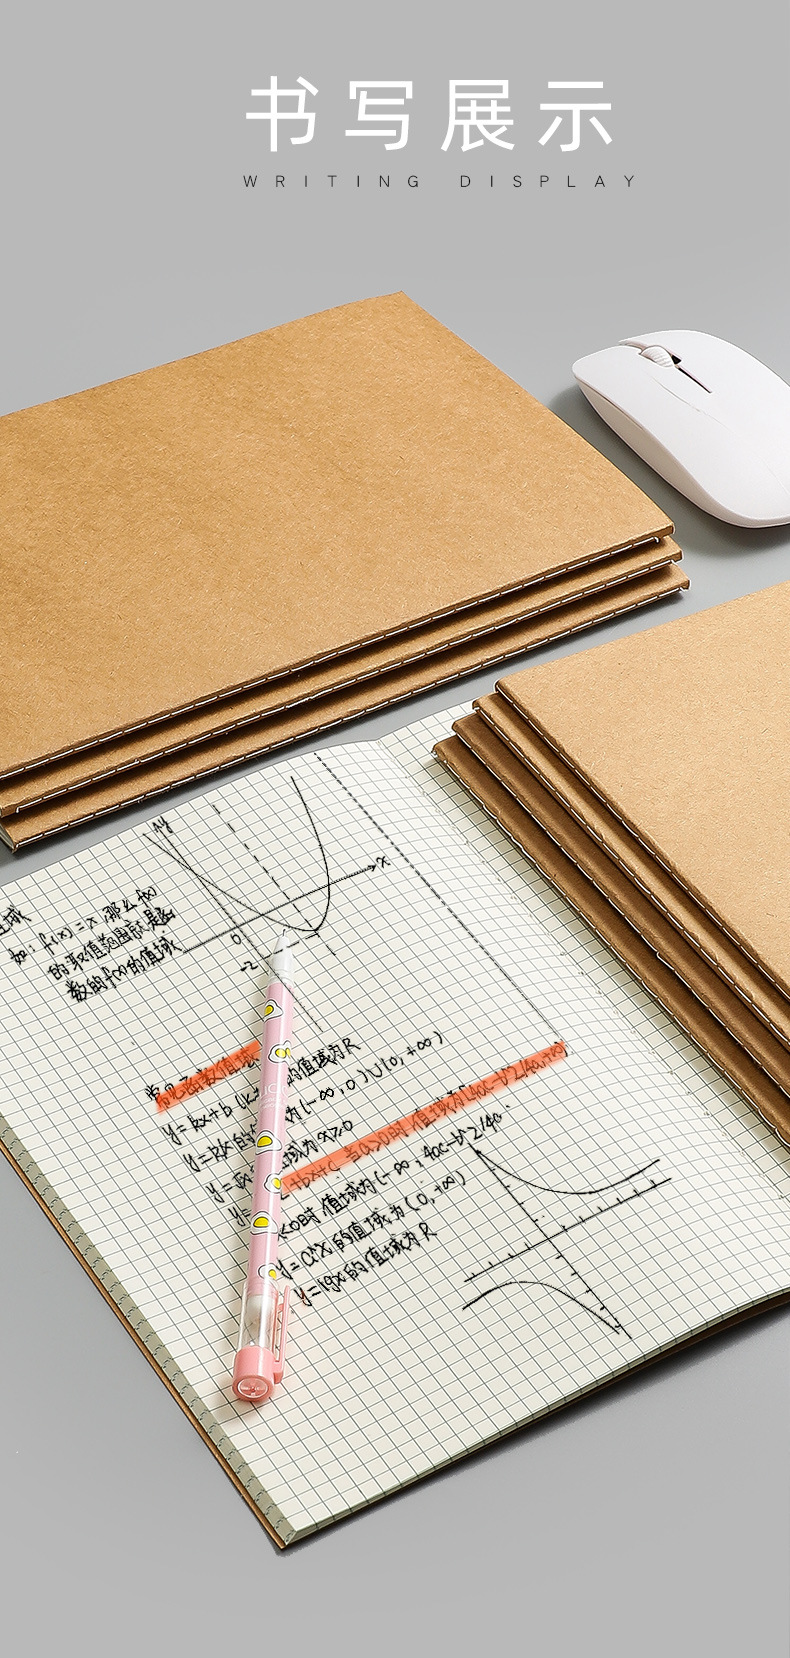 书写展示
WRITING DISPLAY
y
x
0
-2
如：f(x)=x,那么f(x)
的取值范围就是函
数的f(x)的值域
常见函数值域
的值域为R
y=kx+b (k
y=k/x的
为(-∞,0)∪(0,+∞)
域为x≥0
+bx+c 当a>0时,值域为[4ac-b^2/4a,+∞)
<0时,值域为(-∞,4ac-b^2/4a
y=a^x的值域为(0,+∞)
y=lgx的值域为R